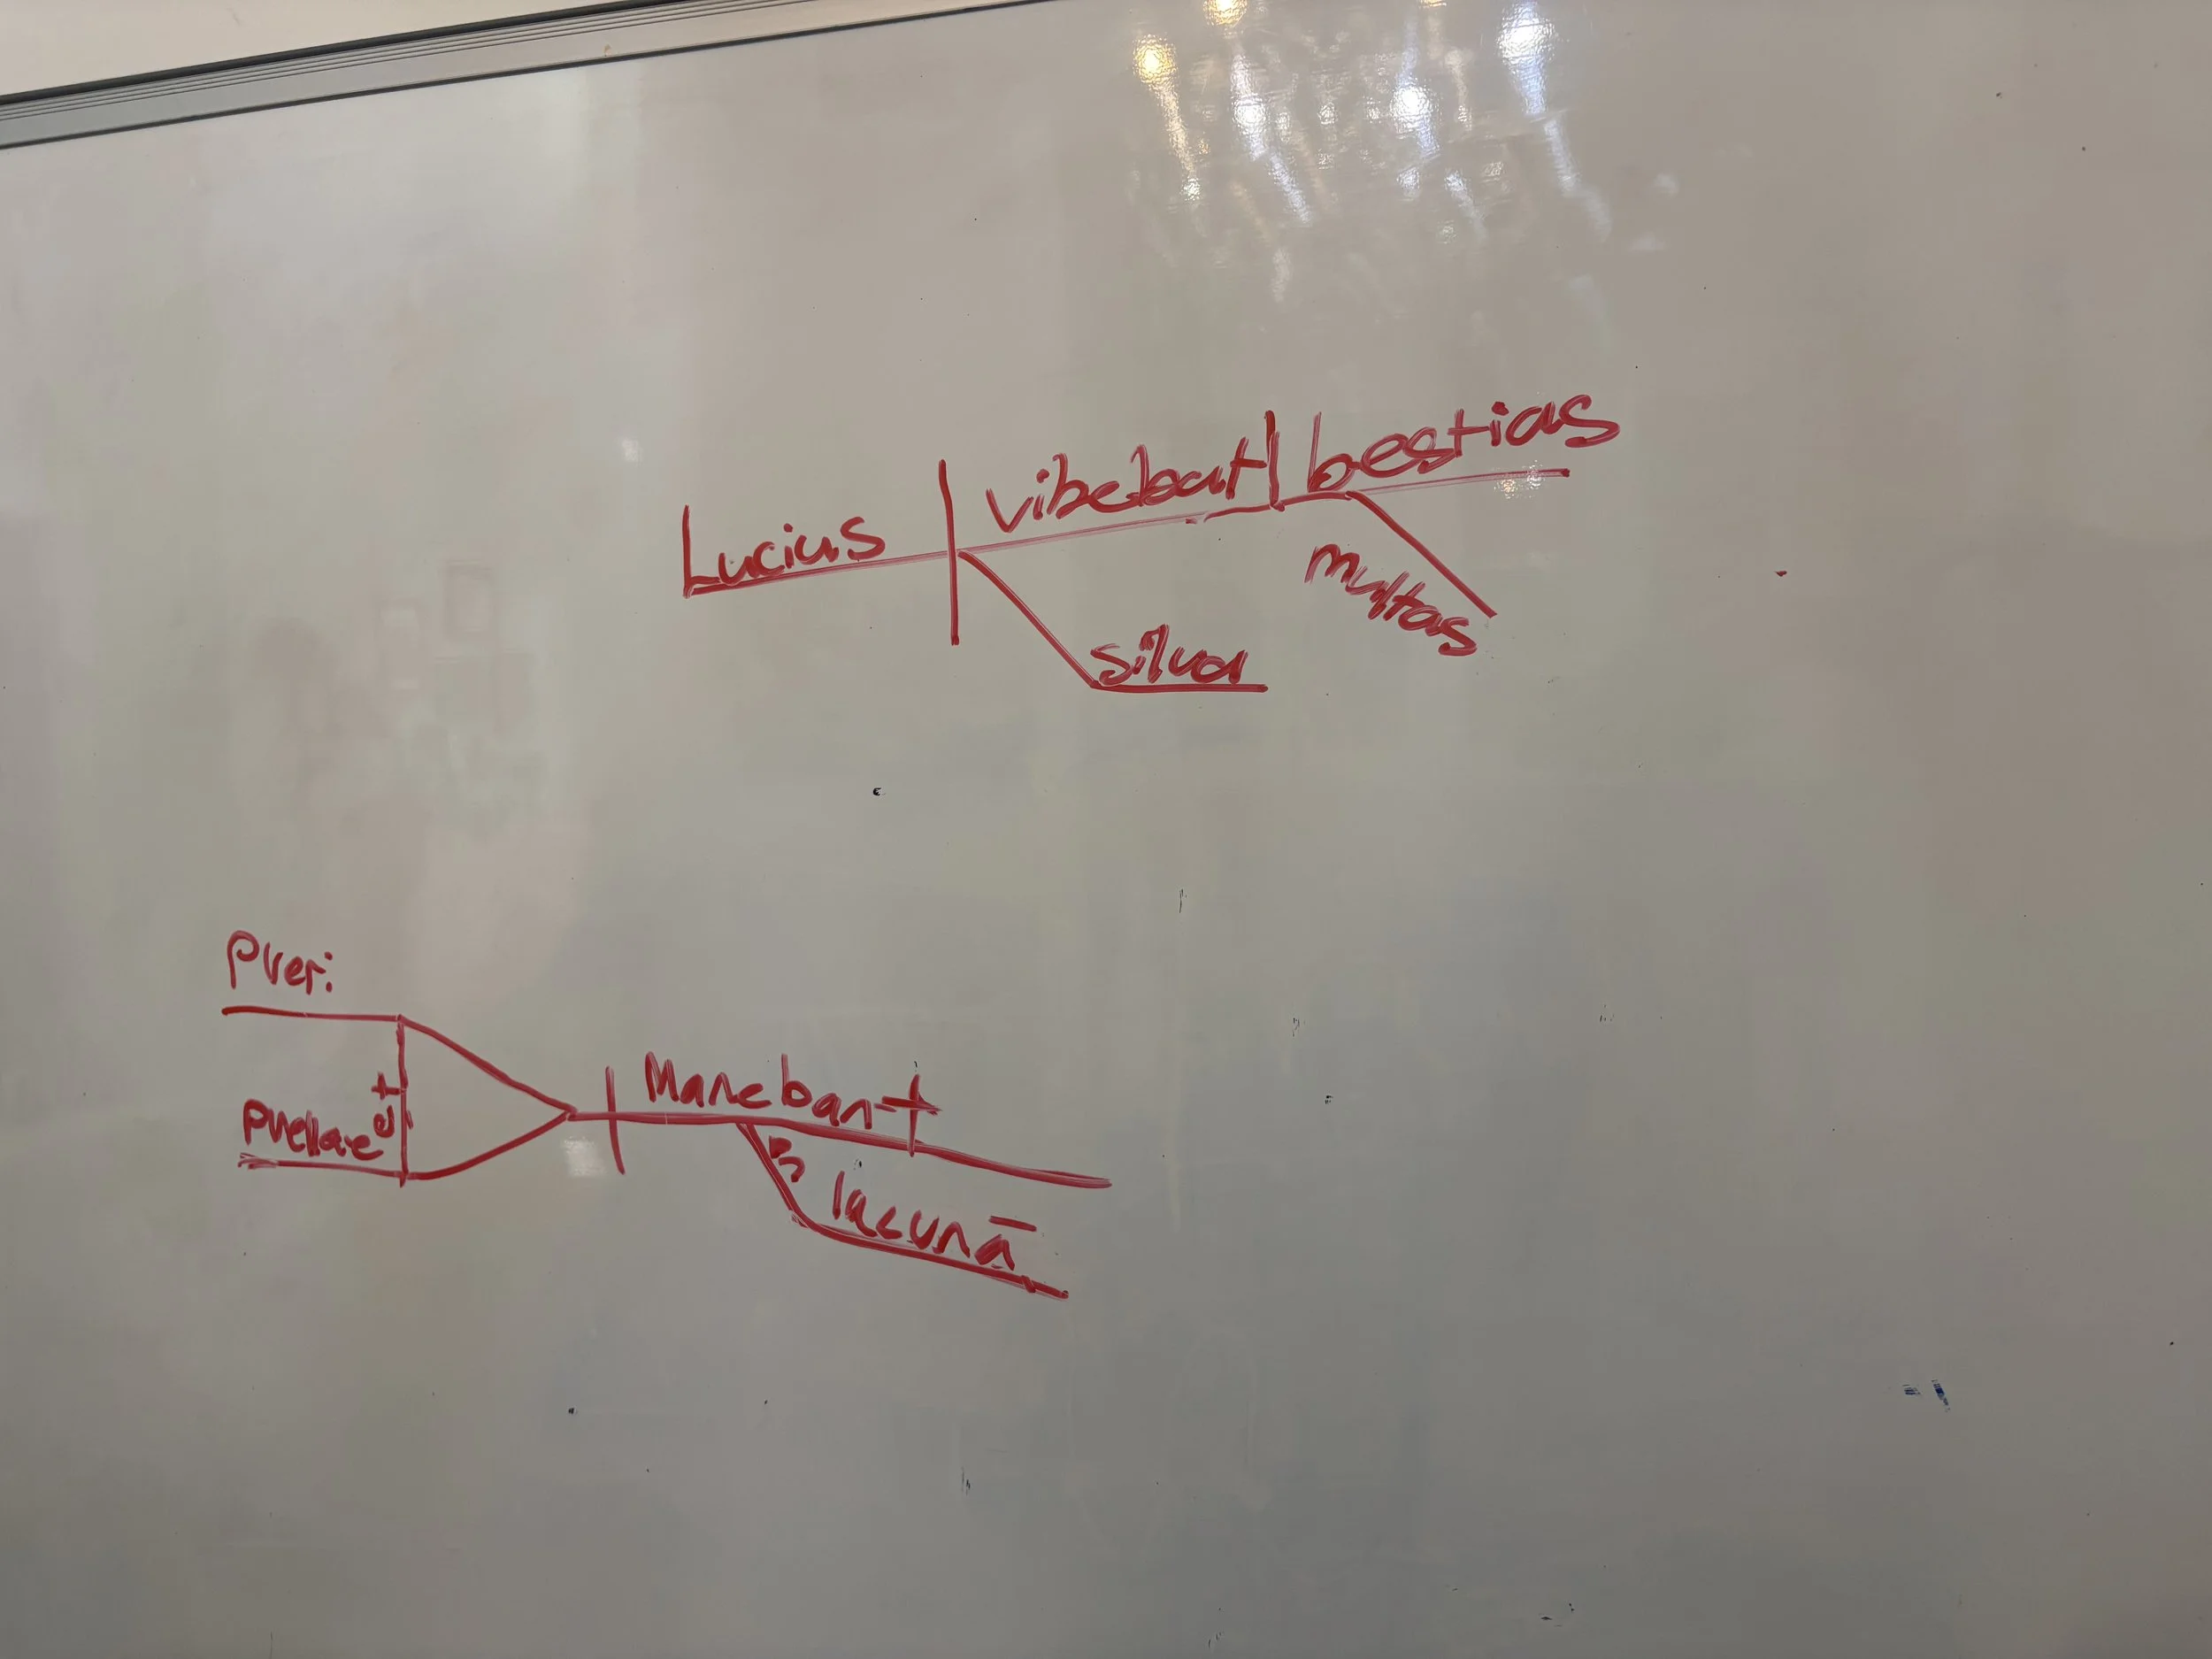 Lucius vibebat bestias
multas
silva
Pueri
et
Puellae
Manebant
in
lacunā